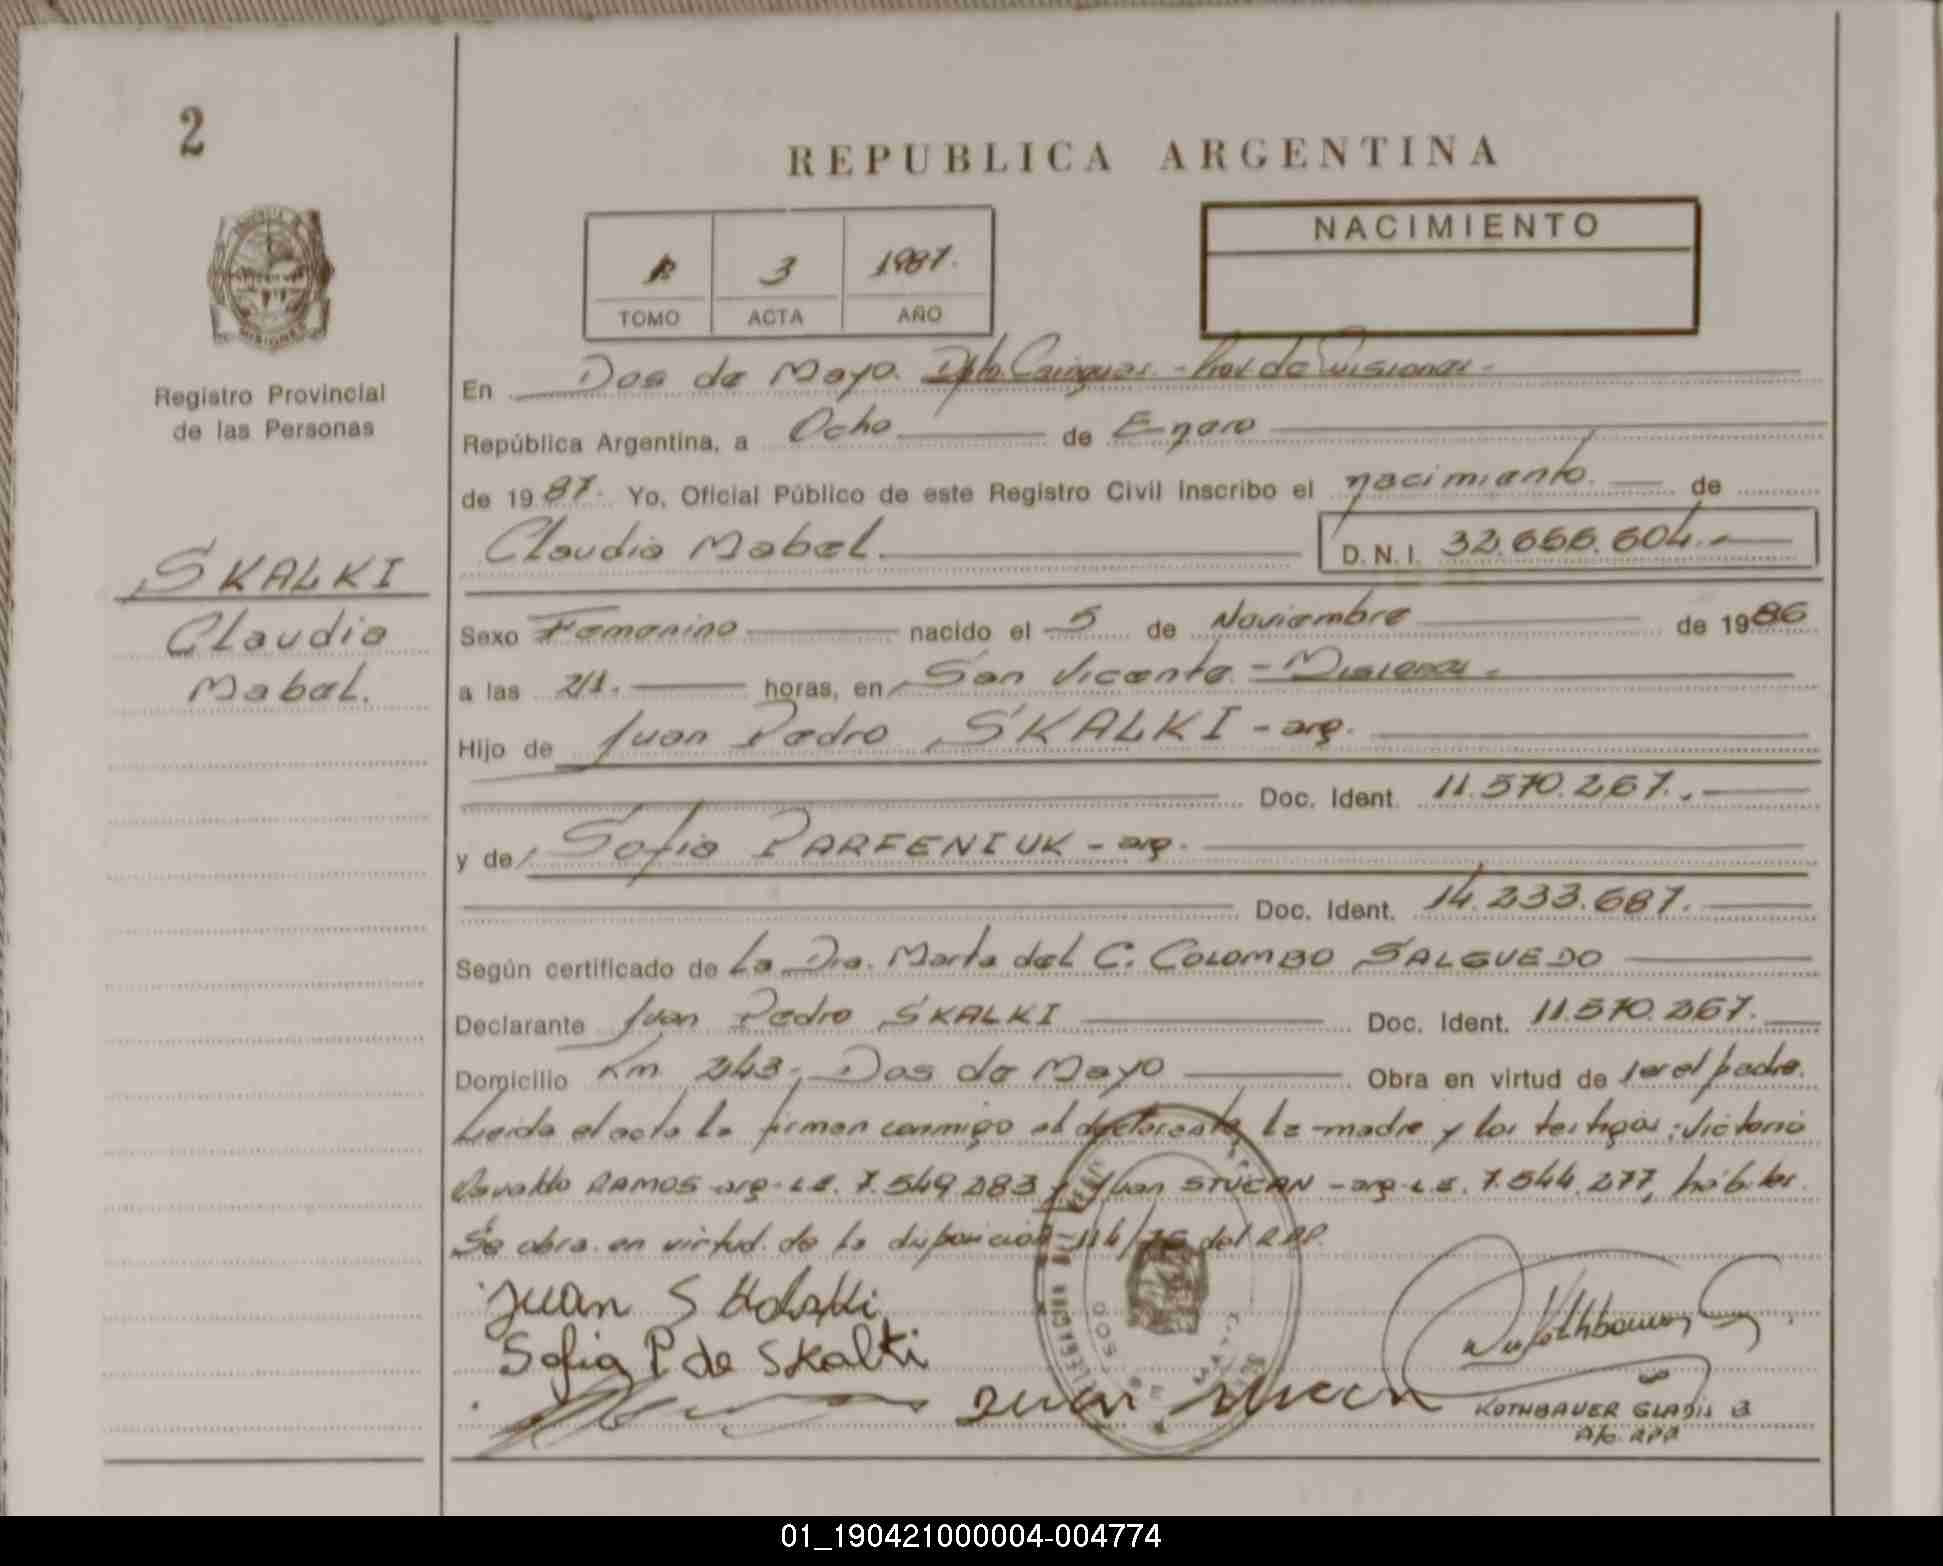 2
REPUBLICA ARGENTINA
NACIMIENTO
3 1987.
TOMO ACTA AÑO
Registro Provincial
de las Personas
En Dos de Mayo. Dpto. Cainguas - Prov. de Misiones -
República Argentina, a Ocho de Enero
de 19 87. Yo, Oficial Público de este Registro Civil inscribo el nacimiento. de
Claudia Mabel. D. N. I. 32.666.604.-
SKALKI
Claudia
Mabel.
Sexo Femenino nacido el 5 de Noviembre de 1986
a las 21. horas, en San Vicente - Misiones.
Hijo de Juan Pedro SKALKI - arg.
Doc. Ident. 11.570.267.
y de Sofia PARFENIUK - arg.
Doc. Ident. 14.233.687.
Según certificado de La Dra. Marta del C. COLOMBO SALGUEDO
Declarante Juan Pedro SKALKI Doc. Ident. 11.570.267.
Domicilio Km 243, Dos de Mayo Obra en virtud de ser el padre.
Leida el acta la firman conmigo el declarante, la madre y los testigos: Victorio
Osvaldo RAMOS - arg - L.E. 7.549.283 y Juan STUCAN - arg - L.E. 7.544.277, hábiles.
Se obra en virtud de la disposición del RPP.
Juan Skalski
Sofia P de Skalki
Juan
KOTHBAUER GLADIS B
A/C RPP
01_190421000004-004774